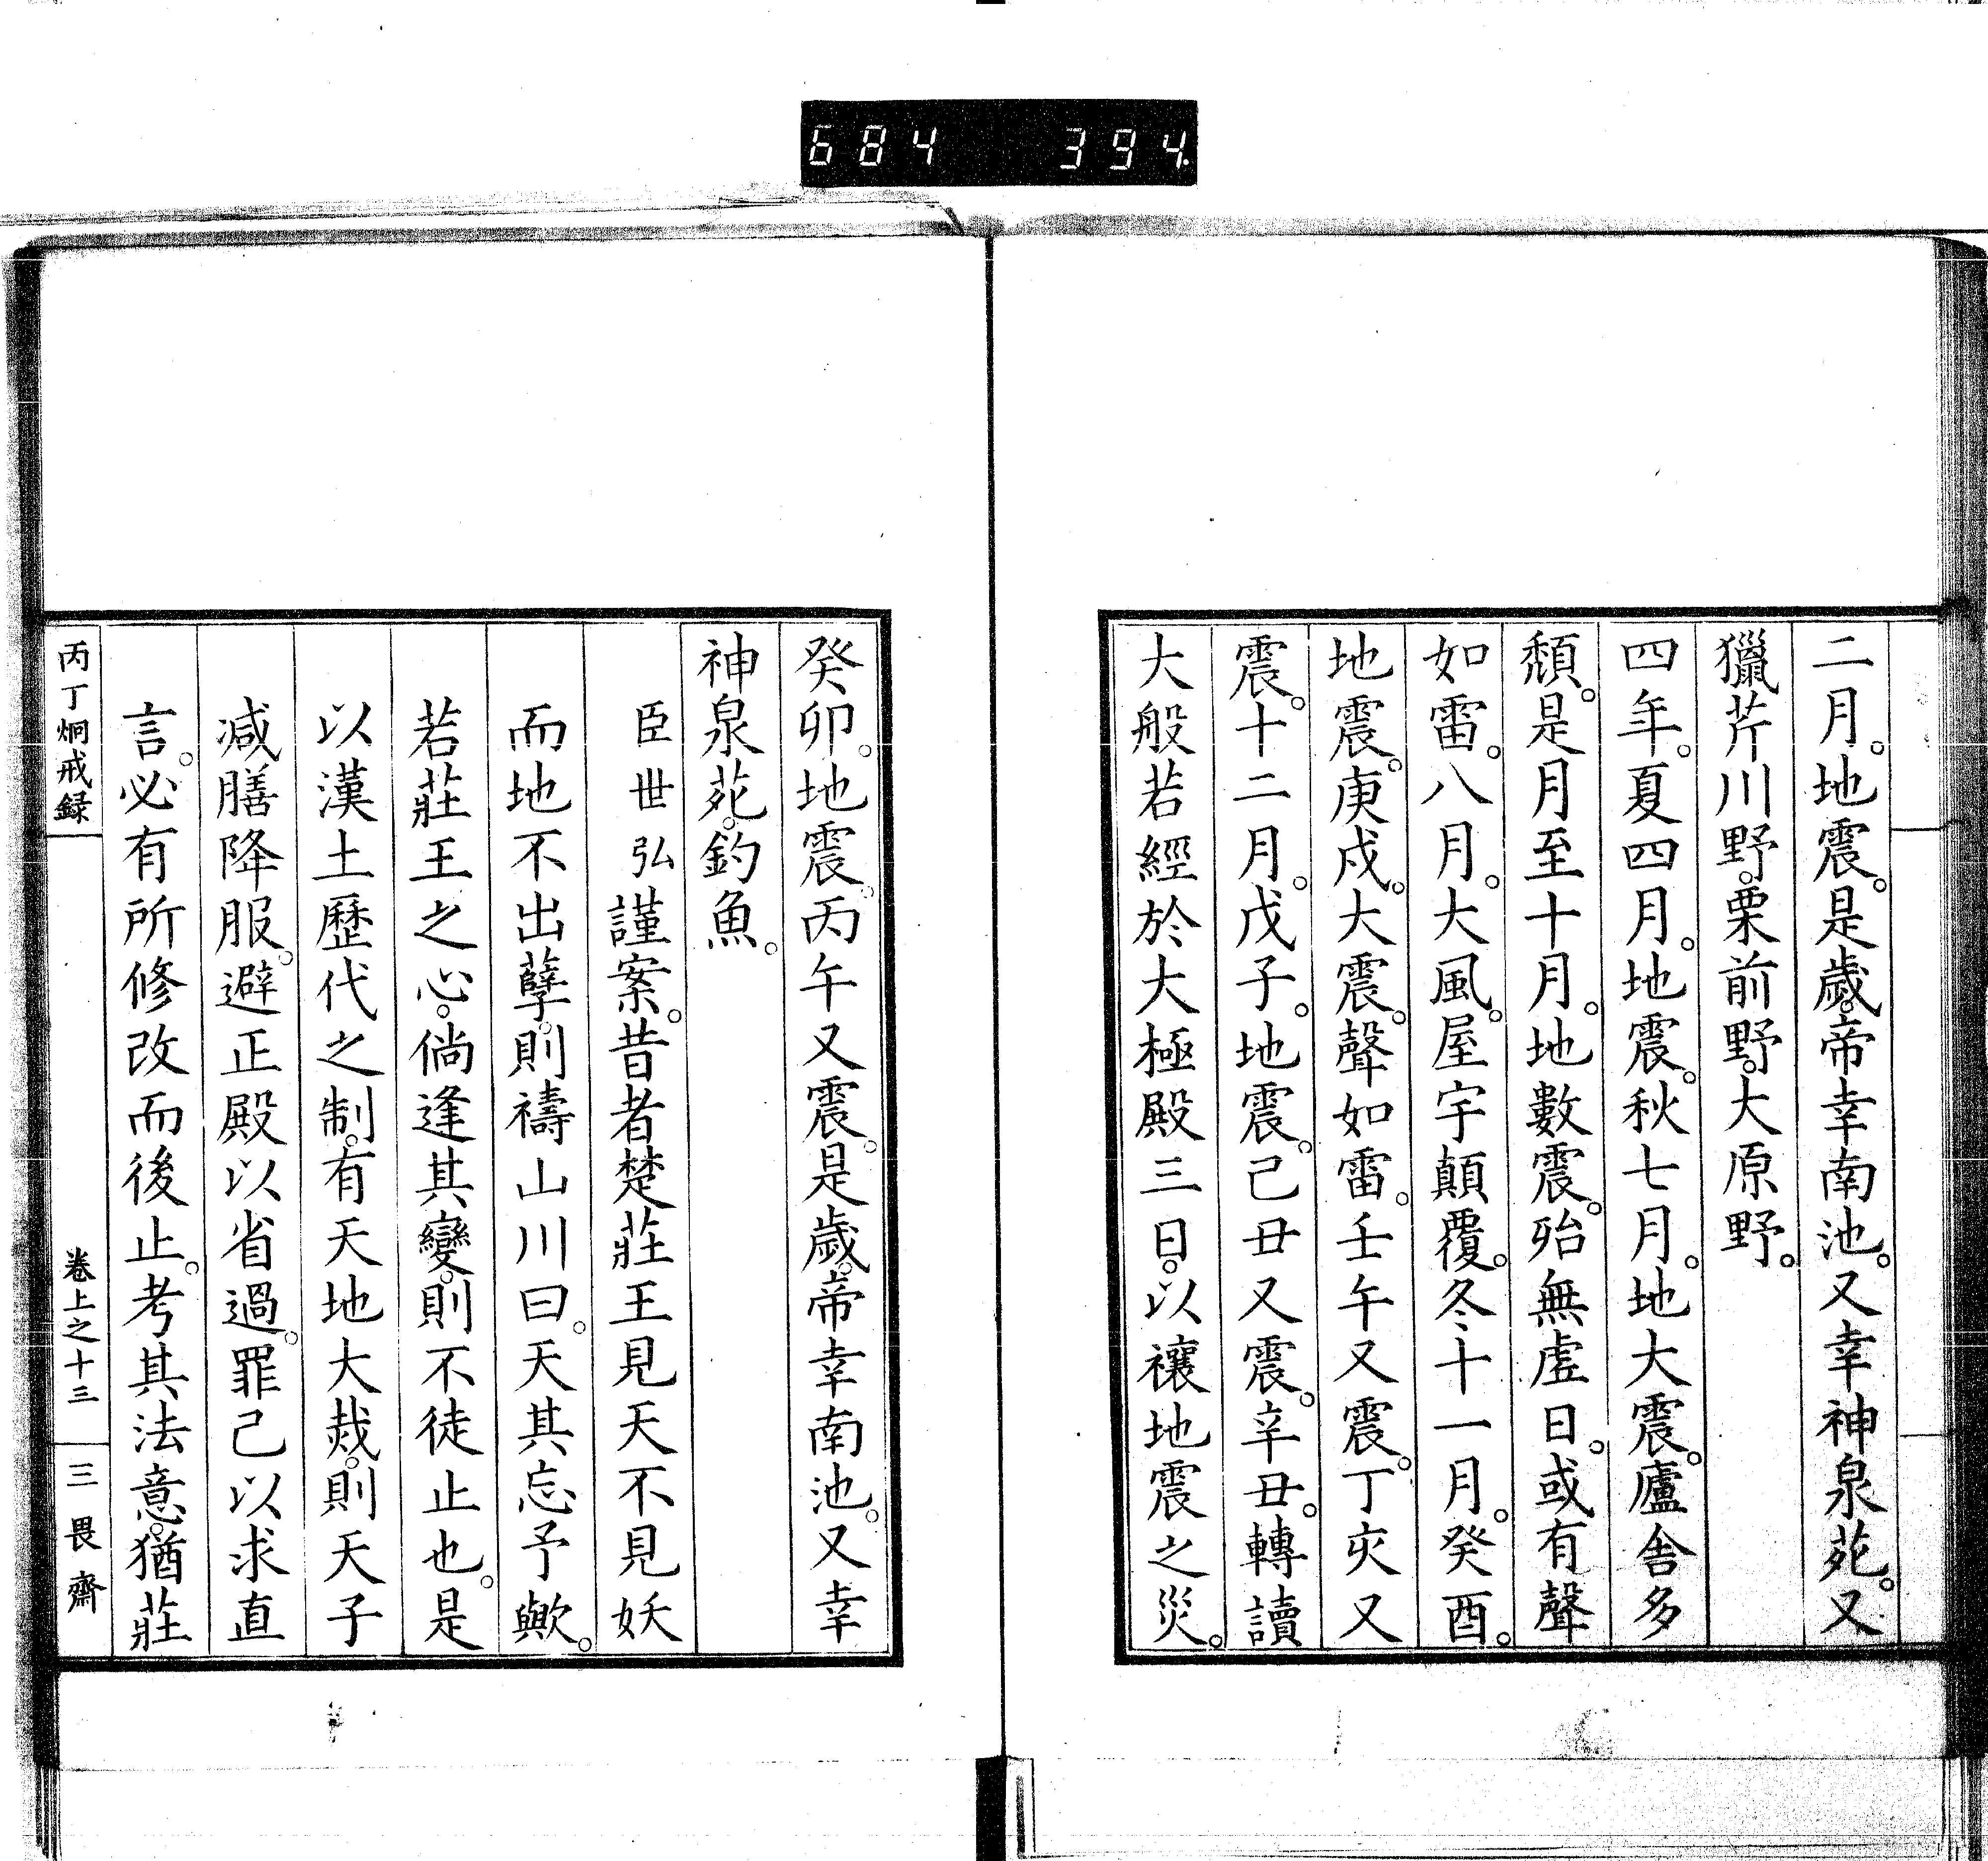 684 394
二月。地震。是歲。帝幸南池。又幸神泉苑。又
獵芹川野。栗前野。大原野。
四年。夏四月。地震。秋七月。地大震。廬舍多
頽。是月至十月。地數震。殆無虛日。或有聲
如雷。八月。大風。屋宇顛覆。冬十一月。癸酉。
地震。庚戌。大震。聲如雷。壬午又震。丁亥又
震。十二月。戊子。地震。己丑又震。辛丑。轉讀
大般若經於大極殿三日。以禳地震之災。
癸卯。地震。丙午又震。是歲。帝幸南池。又幸
神泉苑。釣魚。
臣世弘謹案。昔者楚莊王見天不見妖
而地不出孽。則禱山川曰。天其忘予歟。
若莊王之心。倘逢其變。則不徒止也。是
以漢土歷代之制。有天地大烖。則天子
减膳降服。避正殿以省過。罪己以求直
言。必有所修改而後止。考其法意。猶莊
丙丁烱戒録 卷上之十三 三畏齋